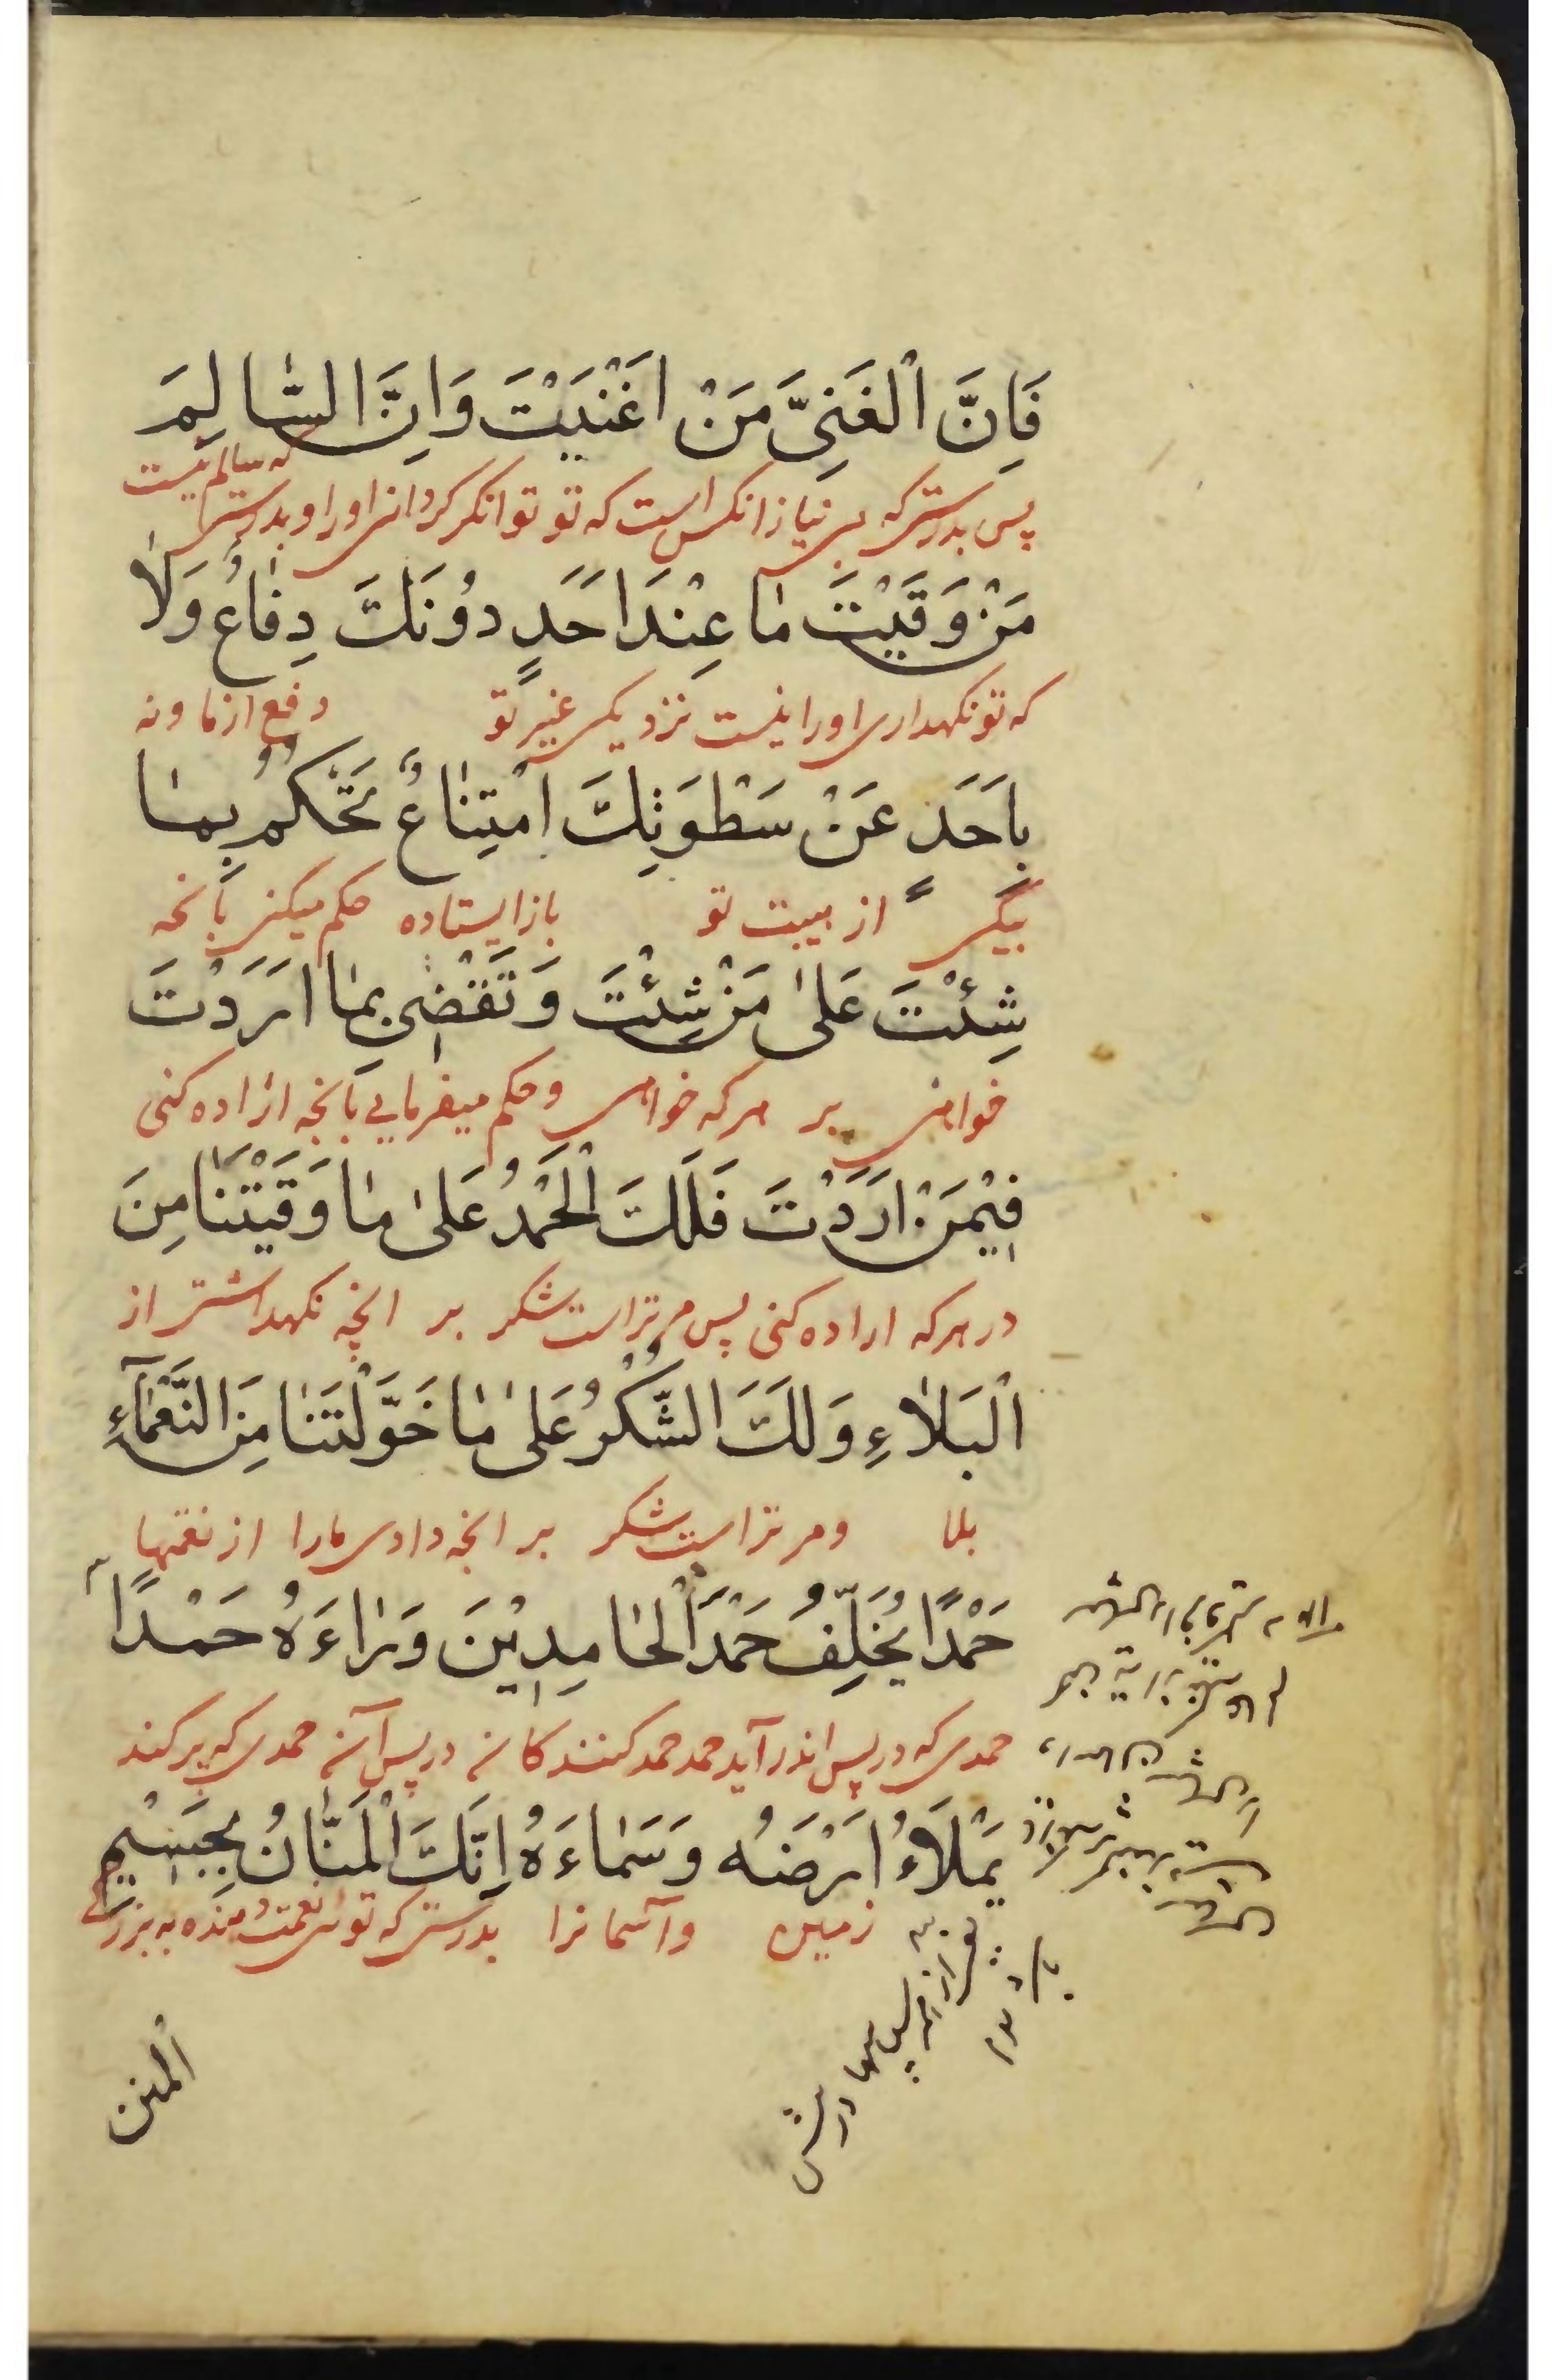 فَاِنَّ الْغَنِیَّ مَنْ اَغْنَیْتَ وَاِنَّ السّٰالِمَ
که سالم نیست
پس بدرستی که بی نیاز انکس است که تو توانگر گردانی او را و بدرستی
مَنْ وَقَیْتَ مٰا عِنْدَ اَحَدٍ دُوْنَكَ دِفٰاعٌ وَلٰا
که تو نکهداری او را نیست نزد یکی غیر تو دفع از ما و نه
بِاَحَدٍ عَنْ سَطْوَتِكَ اِمْتِنٰاعٌ تَحْكُمُ بِمٰا
بیکی از هیبت تو باز ایستاده حکم میکنی بآنچه
شِئْتَ عَلیٰ مَنْ شِئْتَ وَتَقْضِی بِمٰا اَرَدْتَ
خواهی بر هر که خواهی و حکم میفرمایی بآنچه اراده کنی
فِیْمَنْ اَرَدْتَ فَلَكَ الْحَمْدُ عَلیٰ مٰا وَقَیْتَنٰا مِنَ
در هر که اراده کنی پس مر تراست شکر بر انچه نکهداشتی از
الْبَلٰاءِ وَلَكَ الشُّكْرُ عَلیٰ مٰا خَوَّلْتَنٰا مِنَ النَّعْمٰآءِ
بلا و مر تراست شکر بر انچه دادی ما را از نعمتها
حَمْدًا یُخَلِّفُ حَمْدَ الْحٰامِدِیْنَ وَرٰاءَهُ حَمْدًا
حمدی که در پس اندر آید حمد حمد کنندکانه در پس آنه حمدی که پر کند
یَمْلَاءُ اَرْضَهُ وَسَمٰاءَهُ اِنَّكَ الْمَنّٰانُ بِجَسِیْمِ
زمین و آسمانرا بدرستی که توئی نعمت دهنده به بزرگ
المنن